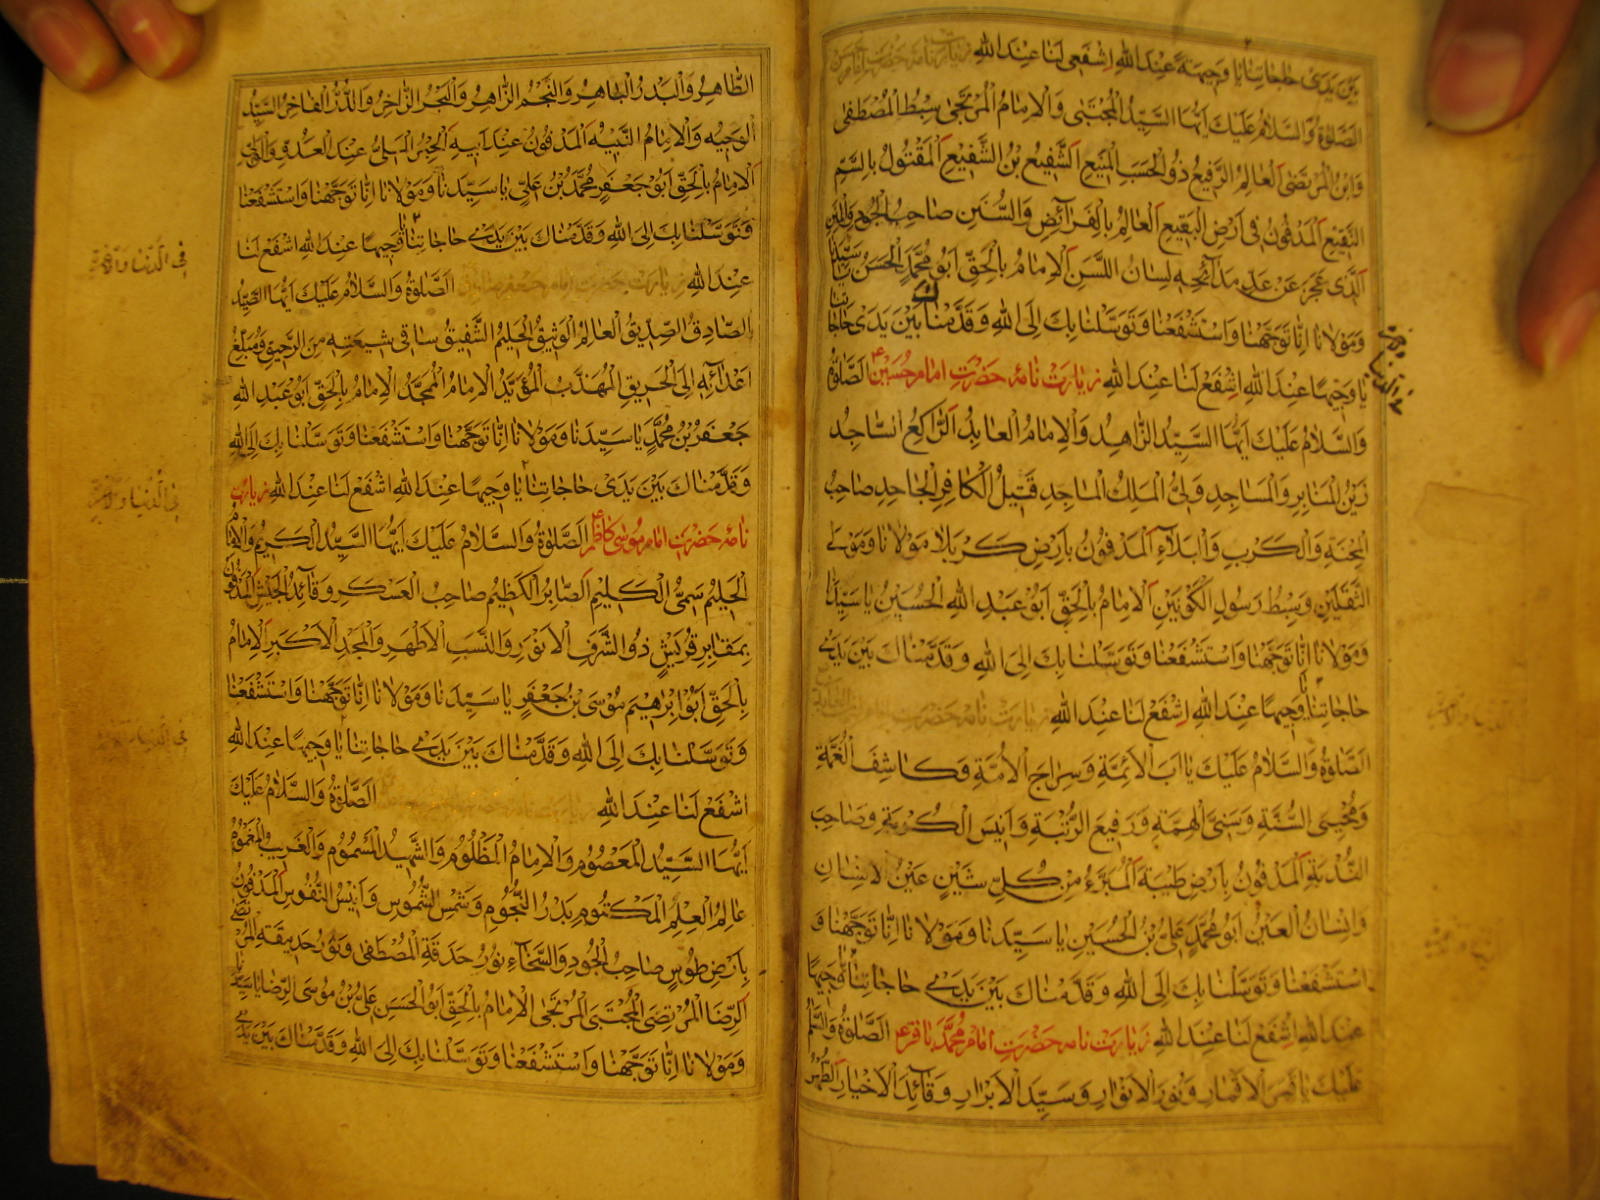 بَيْنَ يَدَيْ حَاجَاتِنَا يَا وَجِيهَةً عِنْدَ اللهِ اِشْفَعِي لَنَا عِنْدَ اللهِ زيارت نامه حضرت امام حسن
الصَّلوٰةُ وَالسَّلَامُ عَلَيْكَ اَيُّهَا السَّيِّدُ الْمُجْتَبٰى وَالْاِمَامُ الْمُرْتَجٰى سِبْطُ الْمُصْطَفٰى
وَابْنُ الْمُرْتَضٰى اَلْعَالِمُ الرَّفِيعُ ذُو الْحَسَبِ الْمَنِيعِ اَلشَّفِيعُ بْنُ الشَّفِيعِ الْمَقْتُولُ بِالسَّمِّ
النَّقِيعِ الْمَدْفُونُ فِي اَرْضِ الْبَقِيعِ الْعَالِمُ بِالْفَرَائِضِ وَالسُّنَنِ صَاحِبُ الْجُودِ وَالْمِنَنِ
الَّذِي عَجَزَ عَنْ عَدِّ مَدَائِحِهِ لِسَانُ اللَّسَنِ اَلْاِمَامُ بِالْحَقِّ اَبُو مُحَمَّدٍ الْحَسَنُ يَا سَيِّدَنَا
وَمَوْلَانَا اِنَّا تَوَجَّهْنَا وَاسْتَشْفَعْنَا وَتَوَسَّلْنَا بِكَ اِلَى اللهِ وَقَدَّمْنَاكَ بَيْنَ يَدَيْ حَاجَاتِنَا
يَا وَجِيهًا عِنْدَ اللهِ اِشْفَعْ لَنَا عِنْدَ اللهِ زيارت نامه حضرت امام حسين ع الصَّلوٰةُ
وَالسَّلَامُ عَلَيْكَ اَيُّهَا السَّيِّدُ الزَّاهِدُ وَالْاِمَامُ الْعَابِدُ الرَّاكِعُ السَّاجِدُ
زَيْنُ الْمَنَابِرِ وَالْمَسَاجِدِ وَلِيُّ الْمَلِكِ الْمَاجِدِ قَتِيلُ الْكَافِرِ الْجَاحِدِ صَاحِبُ
الْمِحْنَةِ وَالْكَرْبِ وَالْبَلَاءِ الْمَدْفُونُ بِاَرْضِ كَرْبَلَا مَوْلَانَا وَمَوْلَى
الثَّقَلَيْنِ وَسِبْطُ رَسُولِ الْكَوْنَيْنِ اَلْاِمَامُ بِالْحَقِّ اَبُو عَبْدِ اللهِ الْحُسَيْنِ يَا سَيِّدَنَا
وَمَوْلَانَا اِنَّا تَوَجَّهْنَا وَاسْتَشْفَعْنَا وَتَوَسَّلْنَا بِكَ اِلَى اللهِ وَقَدَّمْنَاكَ بَيْنَ يَدَيْ
حَاجَاتِنَا يَا وَجِيهًا عِنْدَ اللهِ اِشْفَعْ لَنَا عِنْدَ اللهِ زيارت نامه حضرت امام زين العابدين
الصَّلوٰةُ وَالسَّلَامُ عَلَيْكَ يَا اَبَ الْاَئِمَّةِ وَسِرَاجَ الْاُمَّةِ وَكَاشِفَ الْغُمَّةِ
وَمُحْيِيَ السُّنَّةِ وَسَنِيَّ الْهِمَّةِ وَرَفِيعَ الرُّتْبَةِ وَاَنِيسَ الْكُرْبَةِ وَصَاحِبَ
النُّدْبَةِ الْمَدْفُونُ بِاَرْضِ طَيْبَةَ الْمُبَرَّءُ مِنْ كُلِّ شَيْنٍ عَيْنُ الْاِنْسَانِ
وَاِنْسَانُ الْعَيْنِ اَبُو مُحَمَّدٍ عَلِيُّ بْنُ الْحُسَيْنِ يَا سَيِّدَنَا وَمَوْلَانَا اِنَّا تَوَجَّهْنَا وَ
اسْتَشْفَعْنَا وَتَوَسَّلْنَا بِكَ اِلَى اللهِ وَقَدَّمْنَاكَ بَيْنَ يَدَيْ حَاجَاتِنَا يَا وَجِيهًا
عِنْدَ اللهِ اِشْفَعْ لَنَا عِنْدَ اللهِ زيارت نامه حضرت امام محمد باقر ع الصَّلوٰةُ وَالسَّلَامُ
عَلَيْكَ يَا قَمَرَ الْاَقْمَارِ وَنُورَ الْاَنْوَارِ وَسَيِّدَ الْاَبْرَارِ وَقَائِدَ الْاَخْيَارِ الطُّهْرُ
الطَّاهِرُ وَالْبَدْرُ الْبَاهِرُ وَالنَّجْمُ الزَّاهِرُ وَالْبَحْرُ الزَّاخِرُ وَالدُّرُّ الْفَاخِرُ السَّيِّدُ
الْوَجِيهِ وَالْاِمَامُ النَّبِيهُ الْمَدْفُونُ عِنْدَ اَبِيهِ الْحِبْرُ الْمَلِيُّ عِنْدَ الْعَدُوِّ وَالْوَلِيِّ
الْاِمَامُ بِالْحَقِّ اَبُو جَعْفَرٍ مُحَمَّدُ بْنُ عَلِيٍّ يَا سَيِّدَنَا وَمَوْلَانَا اِنَّا تَوَجَّهْنَا وَاسْتَشْفَعْنَا
وَتَوَسَّلْنَا بِكَ اِلَى اللهِ وَقَدَّمْنَاكَ بَيْنَ يَدَيْ حَاجَاتِنَا يَا وَجِيهًا عِنْدَ اللهِ اشْفَعْ لَنَا
فى الدنيا والآخرة
عِنْدَ اللهِ زيارت حضرت امام جعفر صادق الصَّلوٰةُ وَالسَّلَامُ عَلَيْكَ اَيُّهَا السَّيِّدُ
الصَّادِقُ الصِّدِّيقُ الْعَالِمُ الْوَثِيقُ الْحَلِيمُ الشَّفِيقُ سَاقِي شِيعَتِهِ مِنَ الرَّحِيقِ وَمُبَلِّغُ
اَعْدَائِهِ اِلَى الْحَرِيقِ الْمُهَذَّبُ الْمُؤَيَّدُ الْاِمَامُ الْمُمَجَّدُ الْاِمَامُ بِالْحَقِّ اَبُو عَبْدِ اللهِ
جَعْفَرُ بْنُ مُحَمَّدٍ يَا سَيِّدَنَا وَمَوْلَانَا اِنَّا تَوَجَّهْنَا وَاسْتَشْفَعْنَا وَتَوَسَّلْنَا بِكَ اِلَى اللهِ
وَقَدَّمْنَاكَ بَيْنَ يَدَيْ حَاجَاتِنَا يَا وَجِيهًا عِنْدَ اللهِ اشْفَعْ لَنَا عِنْدَ اللهِ زيارت
فى الدنيا والآخرة
نامه حضرت امام موسى كاظم ع الصَّلوٰةُ وَالسَّلَامُ عَلَيْكَ اَيُّهَا السَّيِّدُ الْكَرِيمُ وَالْاِمَامُ
الْحَلِيمُ سَمِيُّ الْكَلِيمِ الصَّابِرُ الْكَظِيمُ صَاحِبُ الْعَسْكَرِ وَقَائِدُ الْجَيْشِ الْمَدْفُونُ
بِمَقَابِرِ قُرَيْشٍ ذُو الشَّرَفِ الْاَنْوَرِ وَالنَّسَبِ الْاَطْهَرِ وَالْمَجْدِ الْاَكْبَرِ الْاِمَامُ
بِالْحَقِّ اَبُو اِبْرٰهِيمَ مُوسَى بْنُ جَعْفَرٍ يَا سَيِّدَنَا وَمَوْلَانَا اِنَّا تَوَجَّهْنَا وَاسْتَشْفَعْنَا
وَتَوَسَّلْنَا بِكَ اِلَى اللهِ وَقَدَّمْنَاكَ بَيْنَ يَدَيْ حَاجَاتِنَا يَا وَجِيهًا عِنْدَ اللهِ
فى الدنيا والآخرة
اشْفَعْ لَنَا عِنْدَ اللهِ الصَّلوٰةُ وَالسَّلَامُ عَلَيْكَ
اَيُّهَا السَّيِّدُ الْمَعْصُومُ وَالْاِمَامُ الْمَظْلُومُ وَالشَّهِيدُ الْمَسْمُومُ وَالْغَرِيبُ الْمَغْمُومُ
عَالِمُ الْعِلْمِ الْمَكْتُومِ بَدْرُ النُّجُومِ وَشَمْسُ الشُّمُوسِ وَاَنِيسُ النُّفُوسِ الْمَدْفُونُ
بِاَرْضِ طُوسٍ صَاحِبُ الْجُودِ وَالسَّخَاءِ نُورُ حَدَقَةِ الْمُصْطَفٰى وَنَوْرُ حَدِيقَةِ الْمُرْتَضٰى
اَلرِّضَا الْمُرْتَضَى الْمُجْتَبَى الْمُرْتَجَى الْاِمَامُ بِالْحَقِّ اَبُو الْحَسَنِ عَلِيُّ بْنُ مُوسَى الرِّضَا يَا سَيِّدَنَا
وَمَوْلَانَا اِنَّا تَوَجَّهْنَا وَاسْتَشْفَعْنَا وَتَوَسَّلْنَا بِكَ اِلَى اللهِ وَقَدَّمْنَاكَ بَيْنَ يَدَيْ